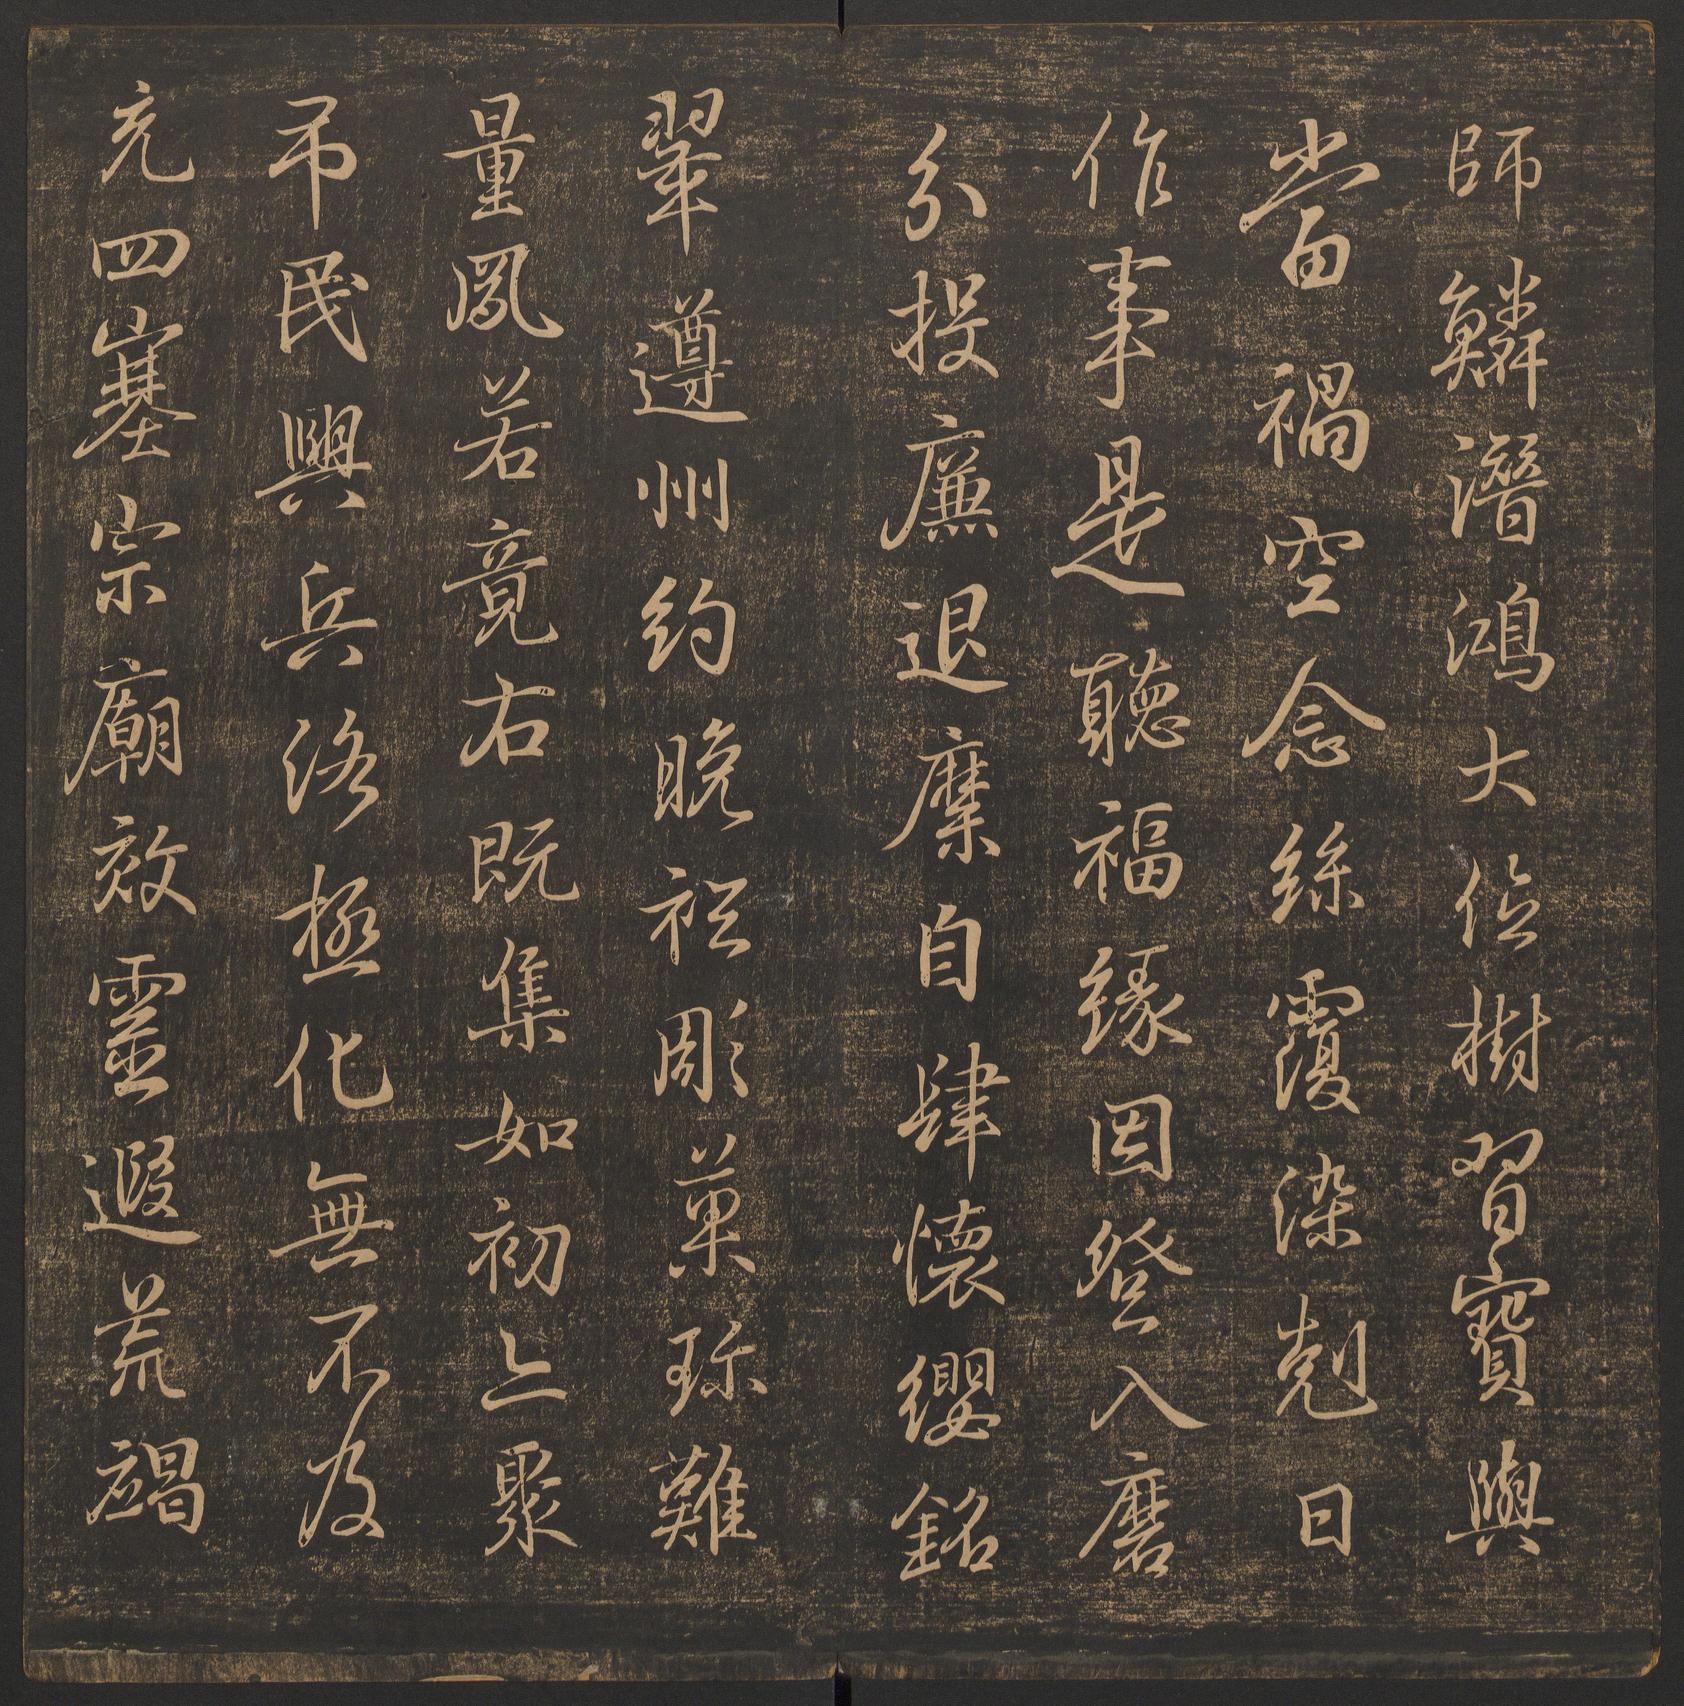 師鱗潛鴻大位樹習寶興
當禍空念絲覆染剋日
作事是聽福緣因登入磨
分投廉退糜自肆懷纓銘
翠遵州約晚彫菓珎難
量鳳若竟右既集如初上聚
弔民興兵洛極化無不及
充四塞宗廟效靈遐荒